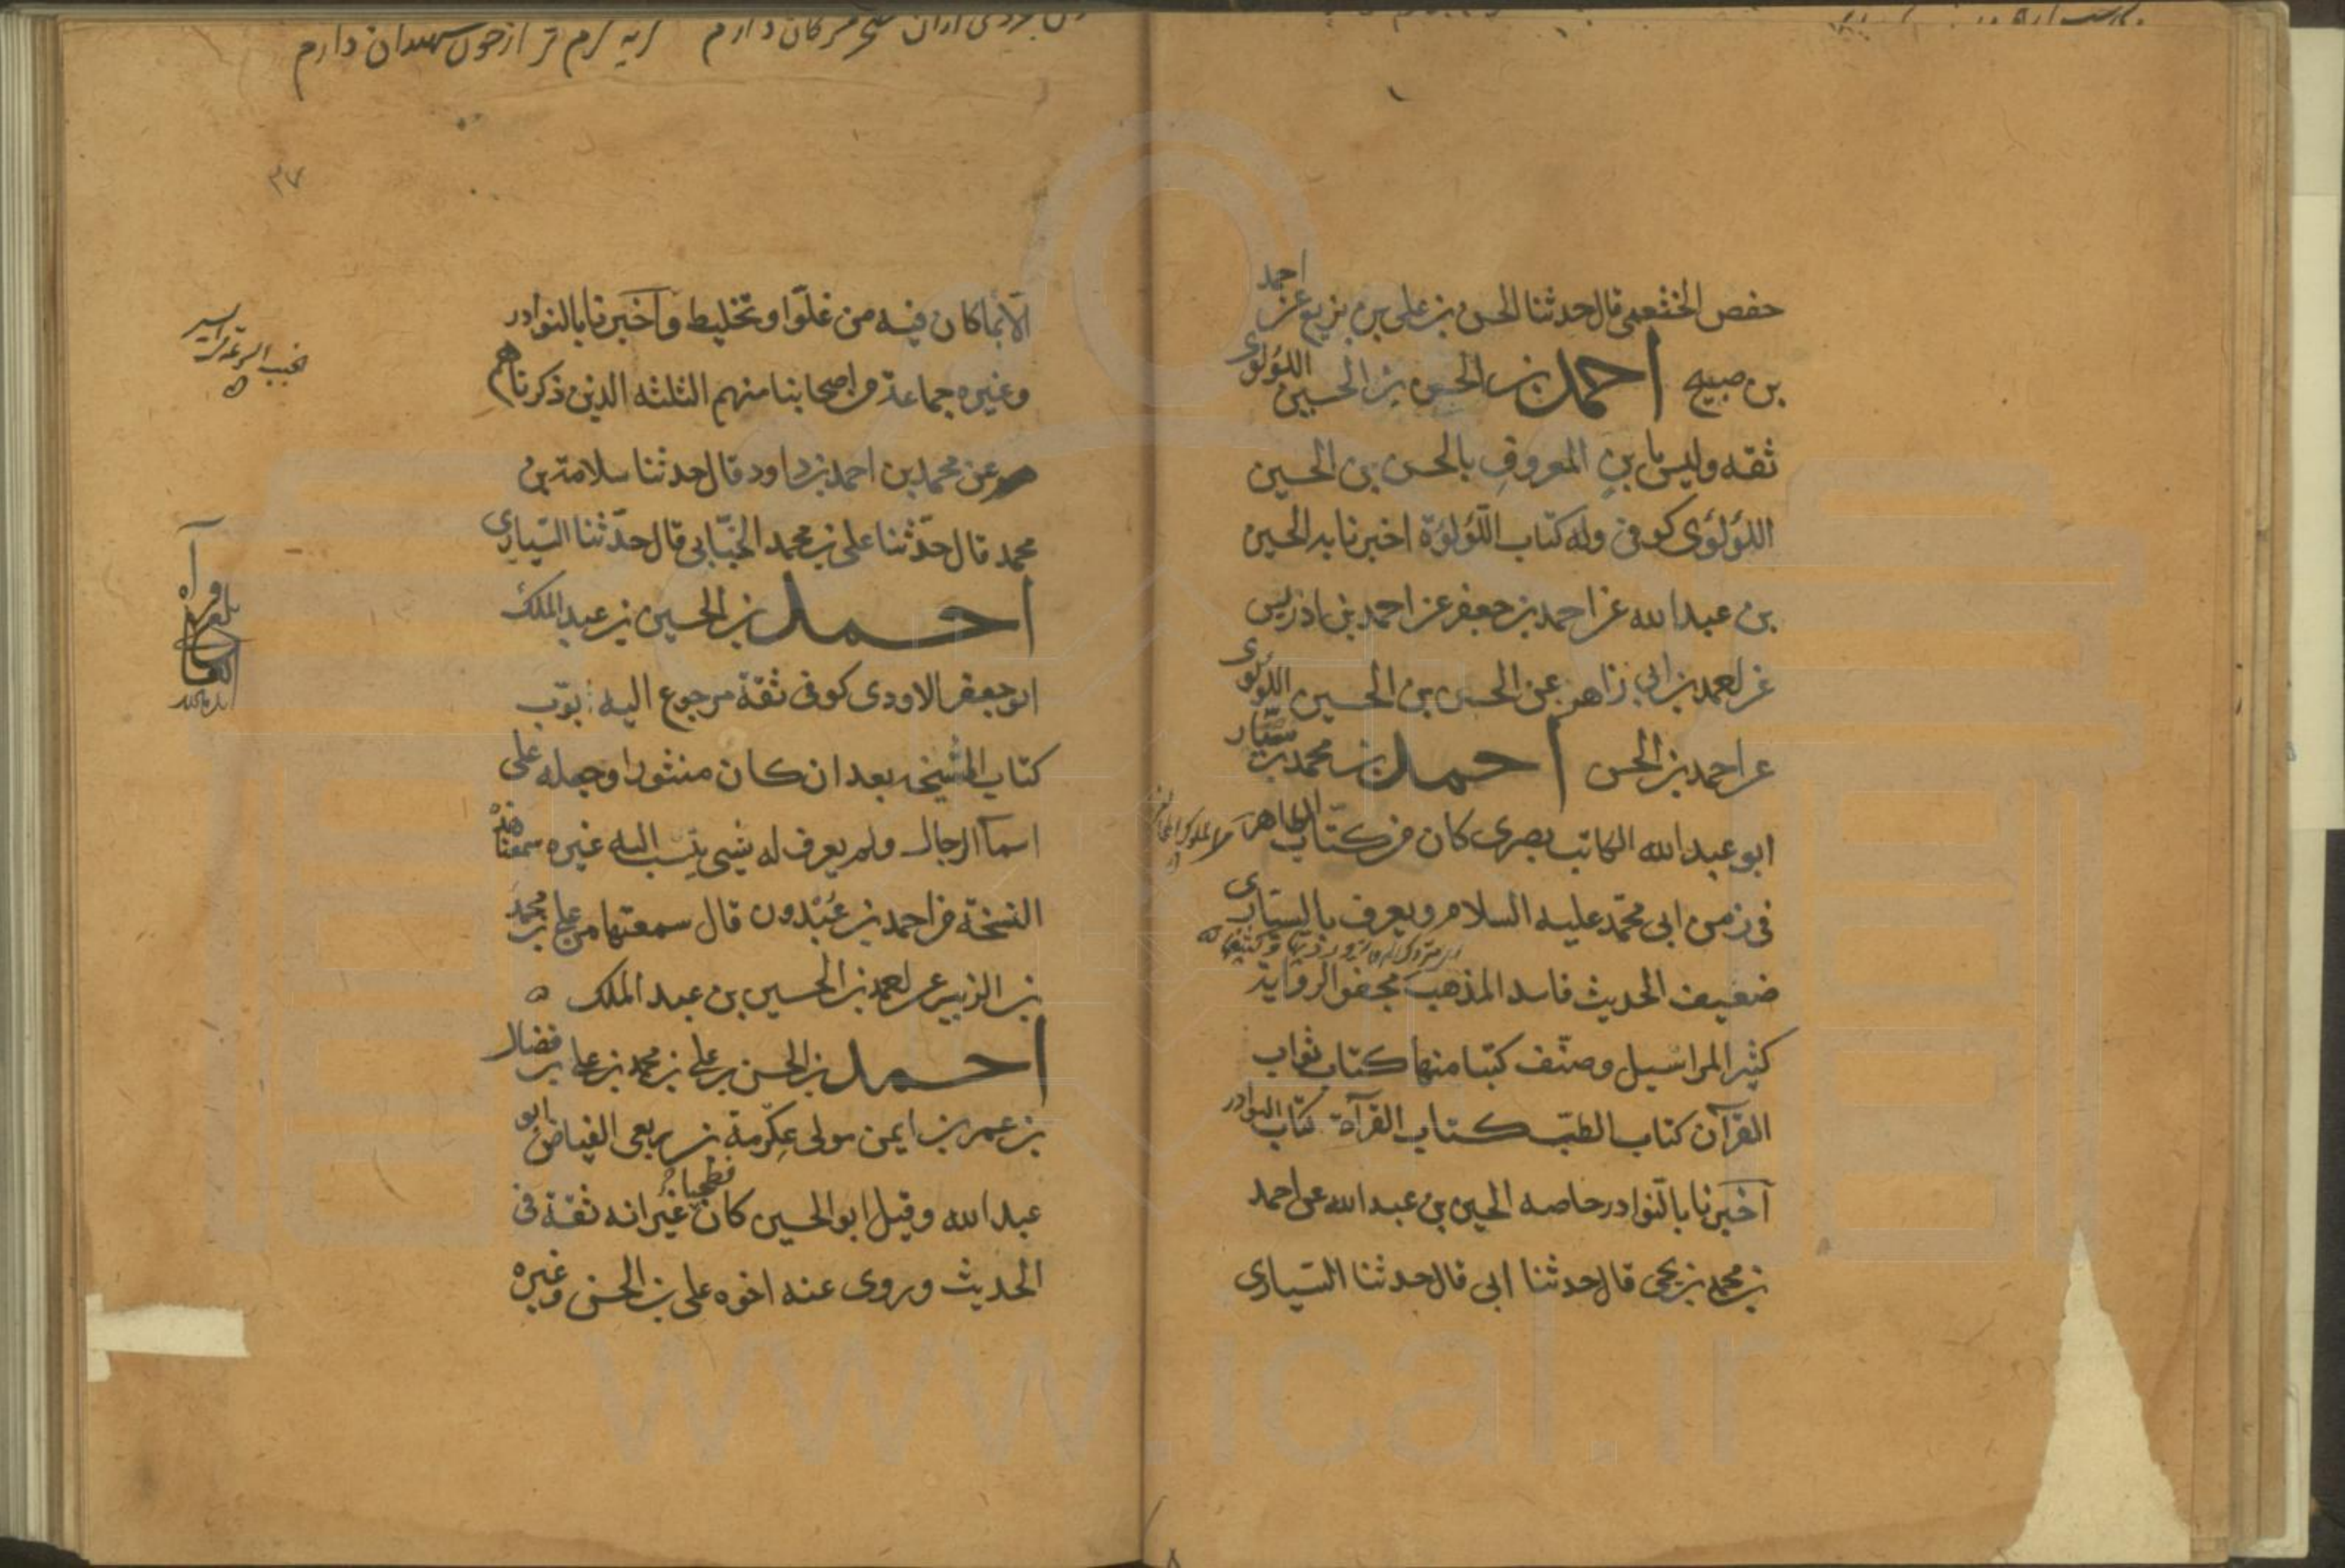 حفص الخثعمی قال حدثنا الحسن بن علی بن بزیع عن احمد
بن صبیح احمد بن الحسن بن الحسین اللؤلؤی
ثقه ولیس بابن المعروف بالحسن بن الحسین
اللؤلؤی کوفی وله کتاب اللؤلؤة اخبرنا به الحسین
بن عبدالله عن احمد بن جعفر عن احمد بن ادریس
عن احمد بن ابی زاهر عن الحسن بن الحسین اللؤلؤی
عن احمد بن الحسن احمد بن محمد بن سیّار
ابو عبدالله الکاتب بصری کان من کتّاب الطاهر
فی زمن ابی محمّد علیه السلام ویعرف بالسیّاری
ضعیف الحدیث فاسد المذهب مجفو الروایة
کثیر المراسیل وصنّف کتبا منها کتاب ثواب
القرآن کتاب الطبّ کتاب القرآة کتاب النوادر
اخبرنا بالنوادر خاصه الحسین بن عبدالله عن احمد
بن محمد بن یحیی قال حدثنا ابی قال حدثنا السیاری
دارم گریه گرم تر از خون شهیدان دارم
۳۷
الّا بما کان فیه من غلّوا وتخلیط واخبرنا بالنوادر
وغیره جماعة من اصحابنا منهم الثلثه الذین ذکرناهم
عن محمد بن احمد بن داود قال حدثنا سلامة بن
محمد قال حدّثنا علی بن محمد الجنّابی قال حدّثنا السیاری
احمد بن الحسین بن عبدالملک
ابو جعفر الاودی کوفی ثقة مرجوع الیه بوّب
کتاب المشیخه بعد ان کان منثورا وجعله علی
اسما الرجال ولم یعرف له شیی ینسب الیه غیره سمعنا هذه
النسخة من احمد بن عُبْدون قال سمعتها من علی بن محمد
بن الزبیر عن احمد بن الحسین بن عبد الملک ه
احمد بن الحسن بن علی بن محمد بن علی بن فضال
بن عمر بن ایمن مولی عِکْرمة بن ربعی الفیاض ابو
عبدالله وقیل ابو الحسین کان فطحیا غیر انه ثقة فی
الحدیث وروی عنه اخوه علی بن الحسن وغیره
www.ical.ir